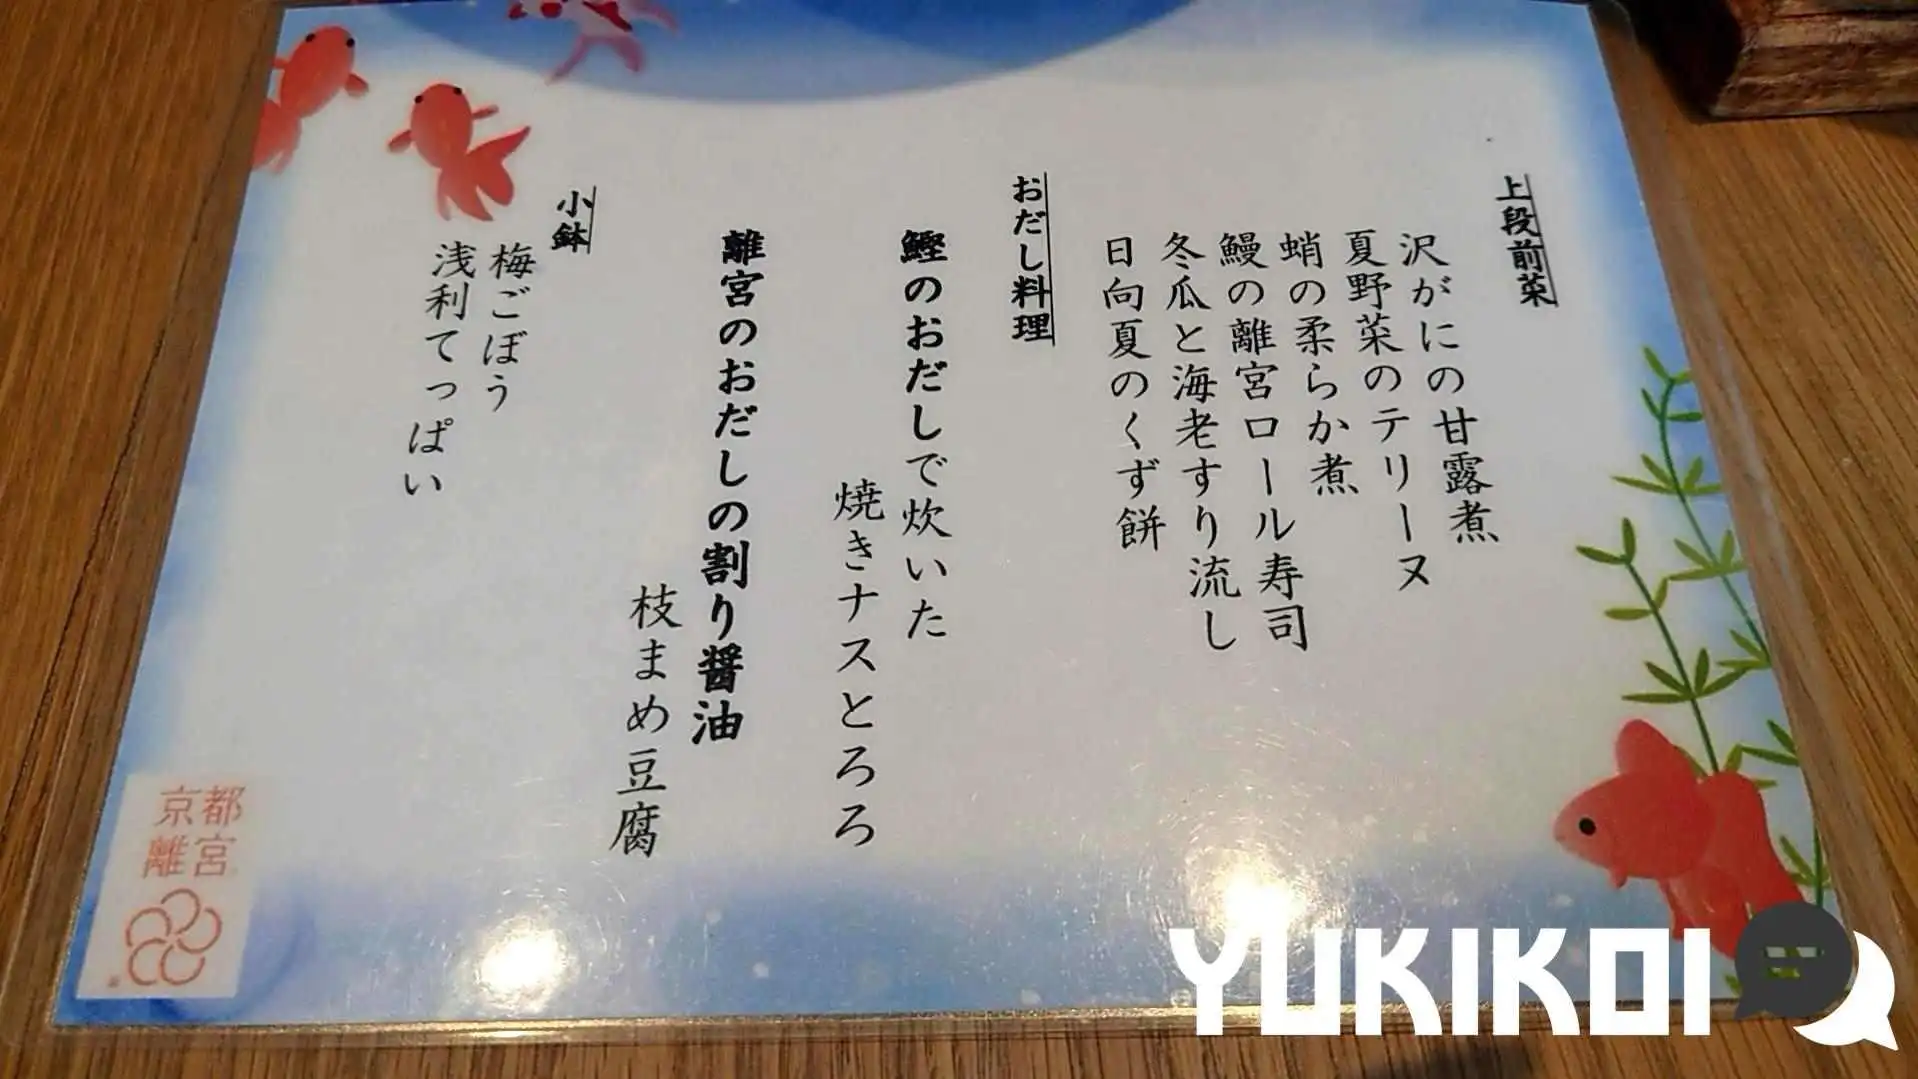 上段前菜
沢がにの甘露煮
夏野菜のテリーヌ
蛸の柔らか煮
鰻の離宮ロール寿司
冬瓜と海老すり流し
日向夏のくず餅
おだし料理
鰹のおだしで炊いた
焼きナスとろろ
離宮のおだしの割り醤油
枝まめ豆腐
小鉢
梅ごぼう
浅利てっぱい
京都
離宮
YUKIKOI